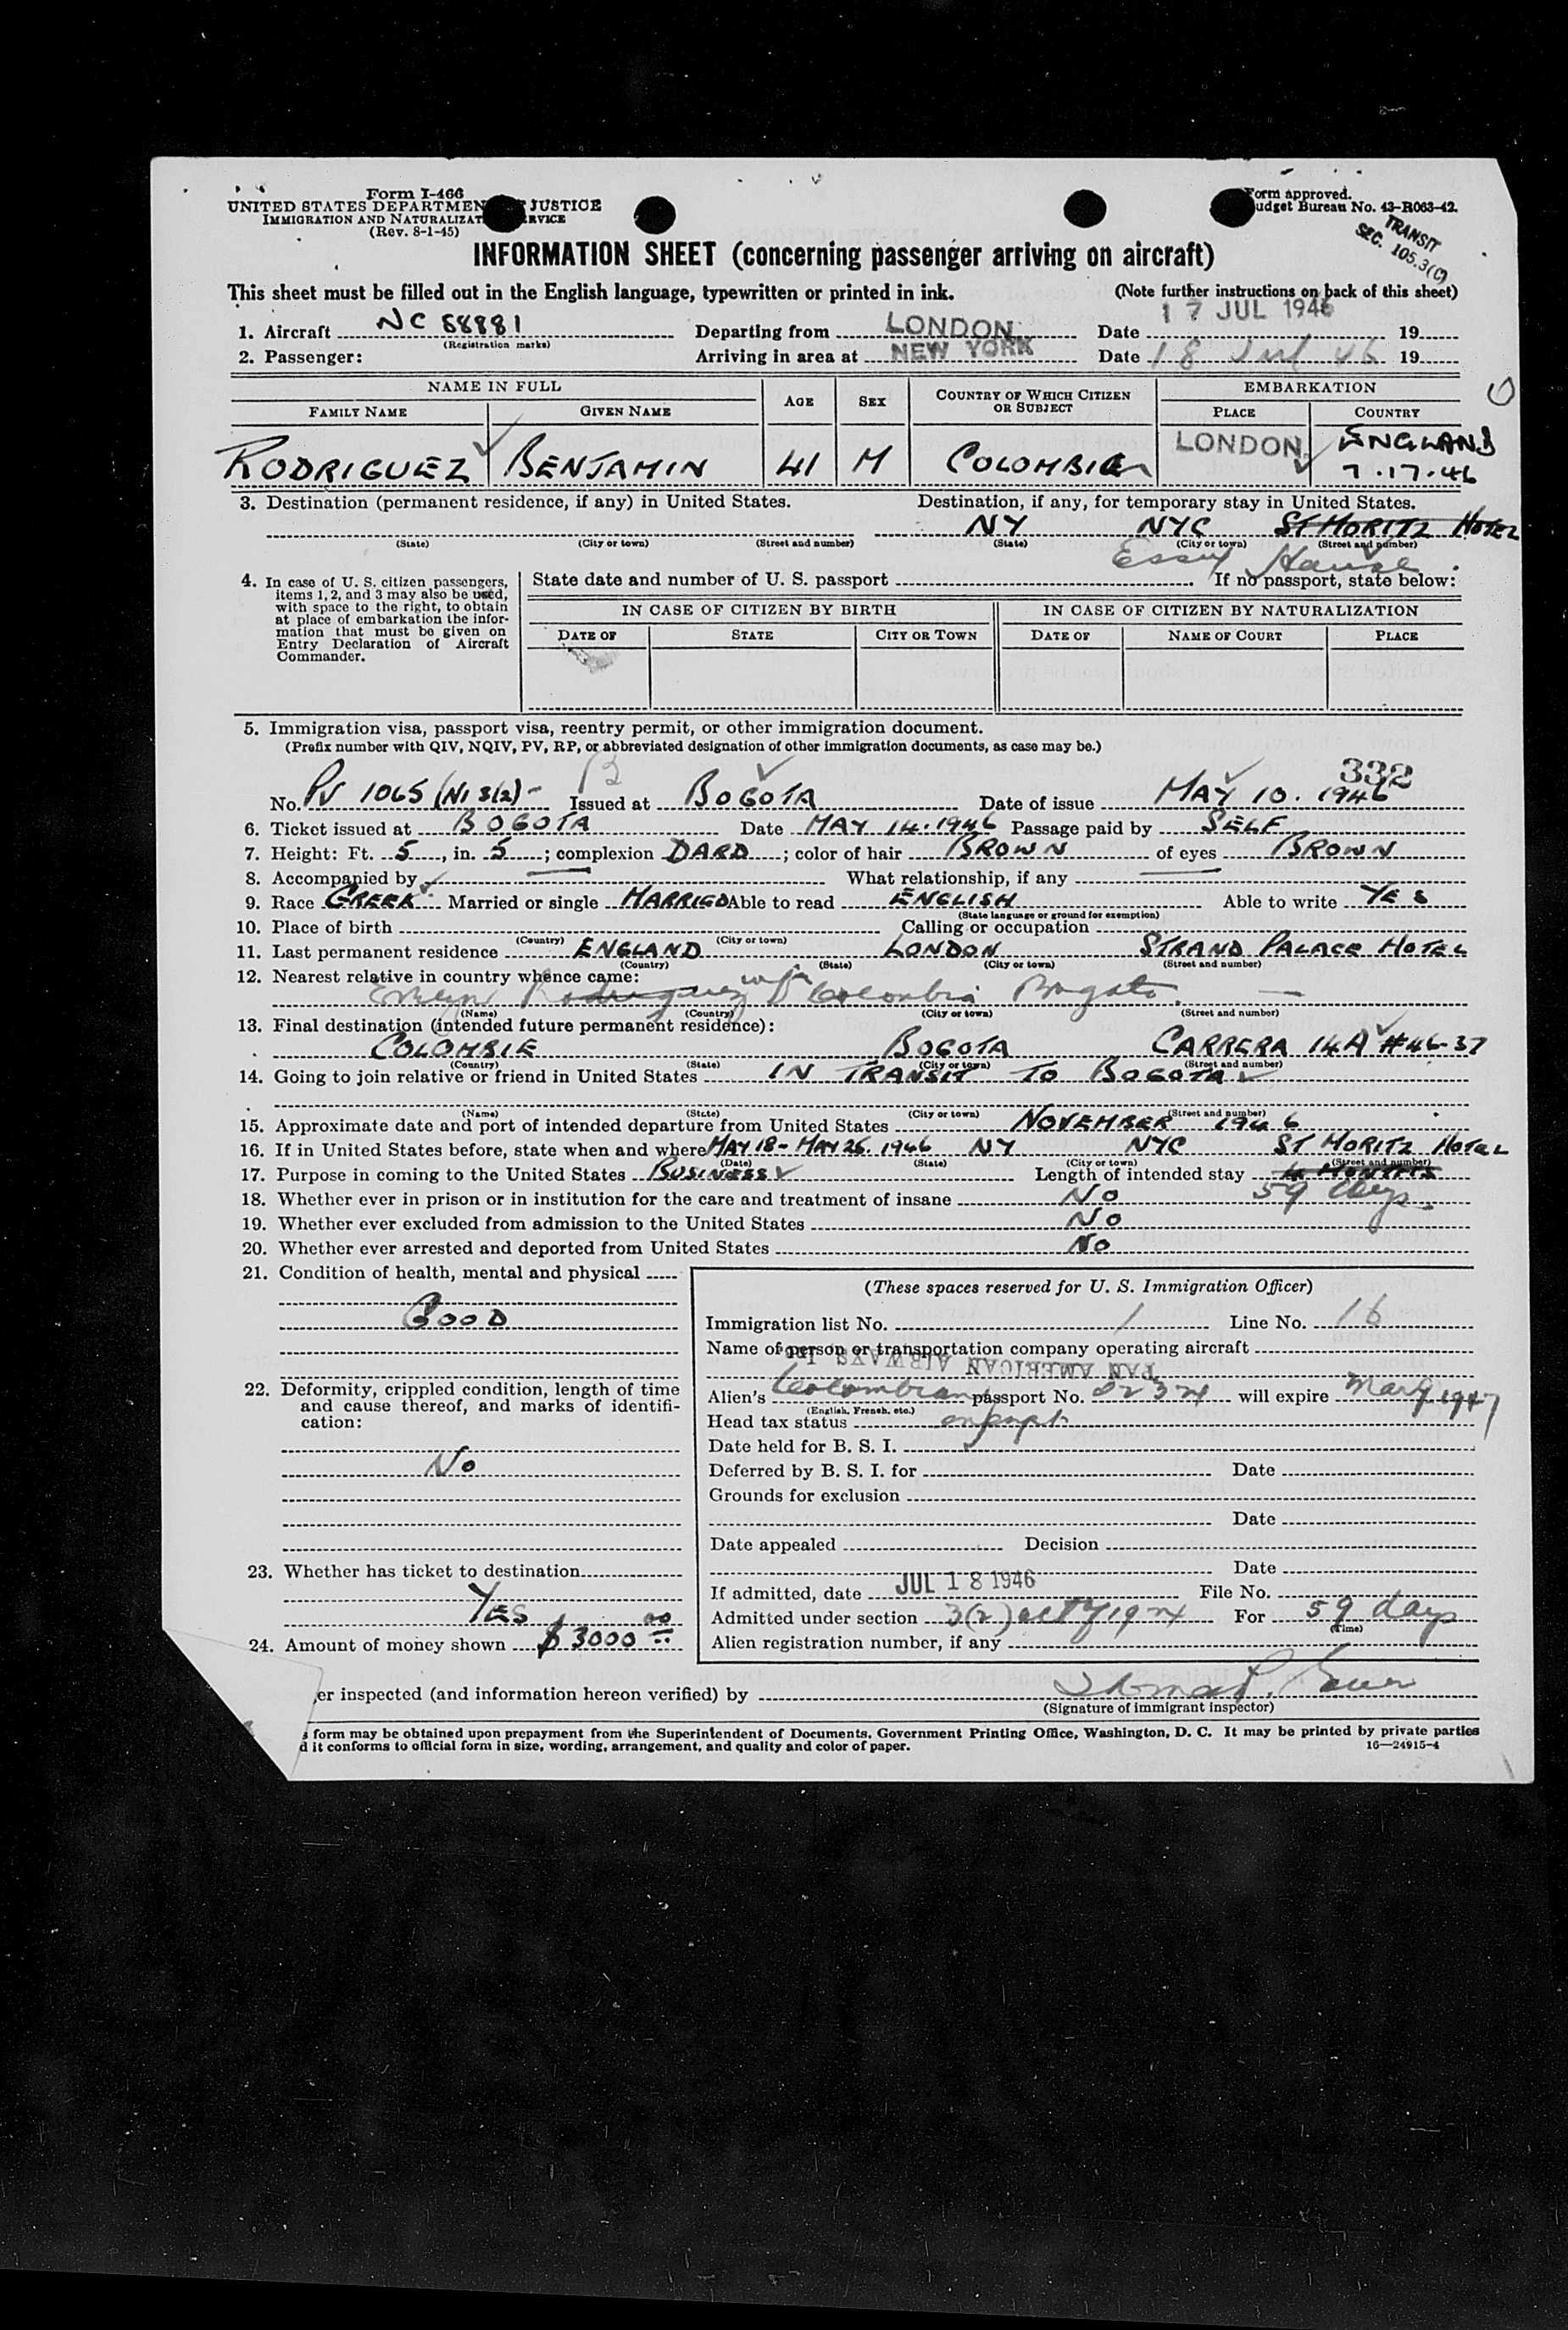 Form I-466
UNITED STATES DEPARTMEN JUSTICE
IMMIGRATION AND NATURALIZAT RVICE
(Rev. 8-1-45)
Form approved.
udget Bureau No. 43-R063-42.
TRANSIT
SEC. 105.3(C)
INFORMATION SHEET (concerning passenger arriving on aircraft)
This sheet must be filled out in the English language, typewritten or printed in ink. (Note further instructions on back of this sheet)
1. Aircraft NC 88881 Departing from LONDON Date 17 JUL 1946 19
(Registration marks)
2. Passenger: Arriving in area at NEW YORK Date 18 Jul 46 19
NAME IN FULL AGE SEX COUNTRY OF WHICH CITIZEN OR SUBJECT EMBARKATION
FAMILY NAME GIVEN NAME PLACE COUNTRY
RODRIGUEZ BENJAMIN 41 M COLOMBIE LONDON ENGLAND
7.17.46
3. Destination (permanent residence, if any) in United States. Destination, if any, for temporary stay in United States.
NY NYC ST MORITZ HOTEL
(State) (City or town) (Street and number) (State) (City or town) (Street and number)
Essex House
4. In case of U. S. citizen passengers, items 1, 2, and 3 may also be used, with space to the right, to obtain at place of embarkation the information that must be given on Entry Declaration of Aircraft Commander.
State date and number of U. S. passport If no passport, state below:
IN CASE OF CITIZEN BY BIRTH IN CASE OF CITIZEN BY NATURALIZATION
DATE OF STATE CITY OR TOWN DATE OF NAME OF COURT PLACE
5. Immigration visa, passport visa, reentry permit, or other immigration document.
(Prefix number with QIV, NQIV, PV, RP, or abbreviated designation of other immigration documents, as case may be.)
332
No. PV 1065 (NI 3(2)- Issued at BOGOTA Date of issue MAY 10. 1946
6. Ticket issued at BOGOTA Date MAY 14. 1946 Passage paid by SELF
7. Height: Ft. 5, in. 5; complexion DARD; color of hair BROWN of eyes BROWN
8. Accompanied by What relationship, if any
9. Race GREEK Married or single MARRIED Able to read ENGLISH Able to write YES
(State language or ground for exemption)
10. Place of birth Calling or occupation
(Country) (City or town)
11. Last permanent residence ENGLAND LONDON STRAND PALACE HOTEL
(Country) (State) (City or town) (Street and number)
12. Nearest relative in country whence came:
Rodriguez wife Colombia Bogota
(Name) (Country) (City or town) (Street and number)
13. Final destination (intended future permanent residence):
COLOMBIE BOGOTA CARRERA 14A #46-37
(Country) (State) (City or town) (Street and number)
14. Going to join relative or friend in United States IN TRANSIT TO BOGOTA
(Name) (State) (City or town) (Street and number)
15. Approximate date and port of intended departure from United States NOVEMBER 1946
16. If in United States before, state when and where MAY 18- MAY 26. 1946 NY NYC ST MORITZ HOTEL
(Date) (State) (City or town) (Street and number)
17. Purpose in coming to the United States BUSINESS Length of intended stay 4 MONTHS
59 days
18. Whether ever in prison or in institution for the care and treatment of insane No
19. Whether ever excluded from admission to the United States No
20. Whether ever arrested and deported from United States No
21. Condition of health, mental and physical
GOOD
22. Deformity, crippled condition, length of time and cause thereof, and marks of identification:
No
23. Whether has ticket to destination
YES
24. Amount of money shown $3000 00
(These spaces reserved for U. S. Immigration Officer)
Immigration list No. 1 Line No. 16
Name of person or transportation company operating aircraft
PAN AMERICAN AIRWAYS, Inc.
Alien's Colombian passport No. 0232 will expire May 9 1947
(English, French, etc.)
Head tax status exempt
Date held for B. S. I.
Deferred by B. S. I. for Date
Grounds for exclusion
Date
Date appealed Decision
Date
If admitted, date JUL 18 1946 File No.
Admitted under section 3(2) act of 1924 For 59 days
(Time)
Alien registration number, if any
er inspected (and information hereon verified) by
(Signature of immigrant inspector)
s form may be obtained upon prepayment from the Superintendent of Documents, Government Printing Office, Washington, D. C. It may be printed by private parties
d it conforms to official form in size, wording, arrangement, and quality and color of paper. 16—24915-4